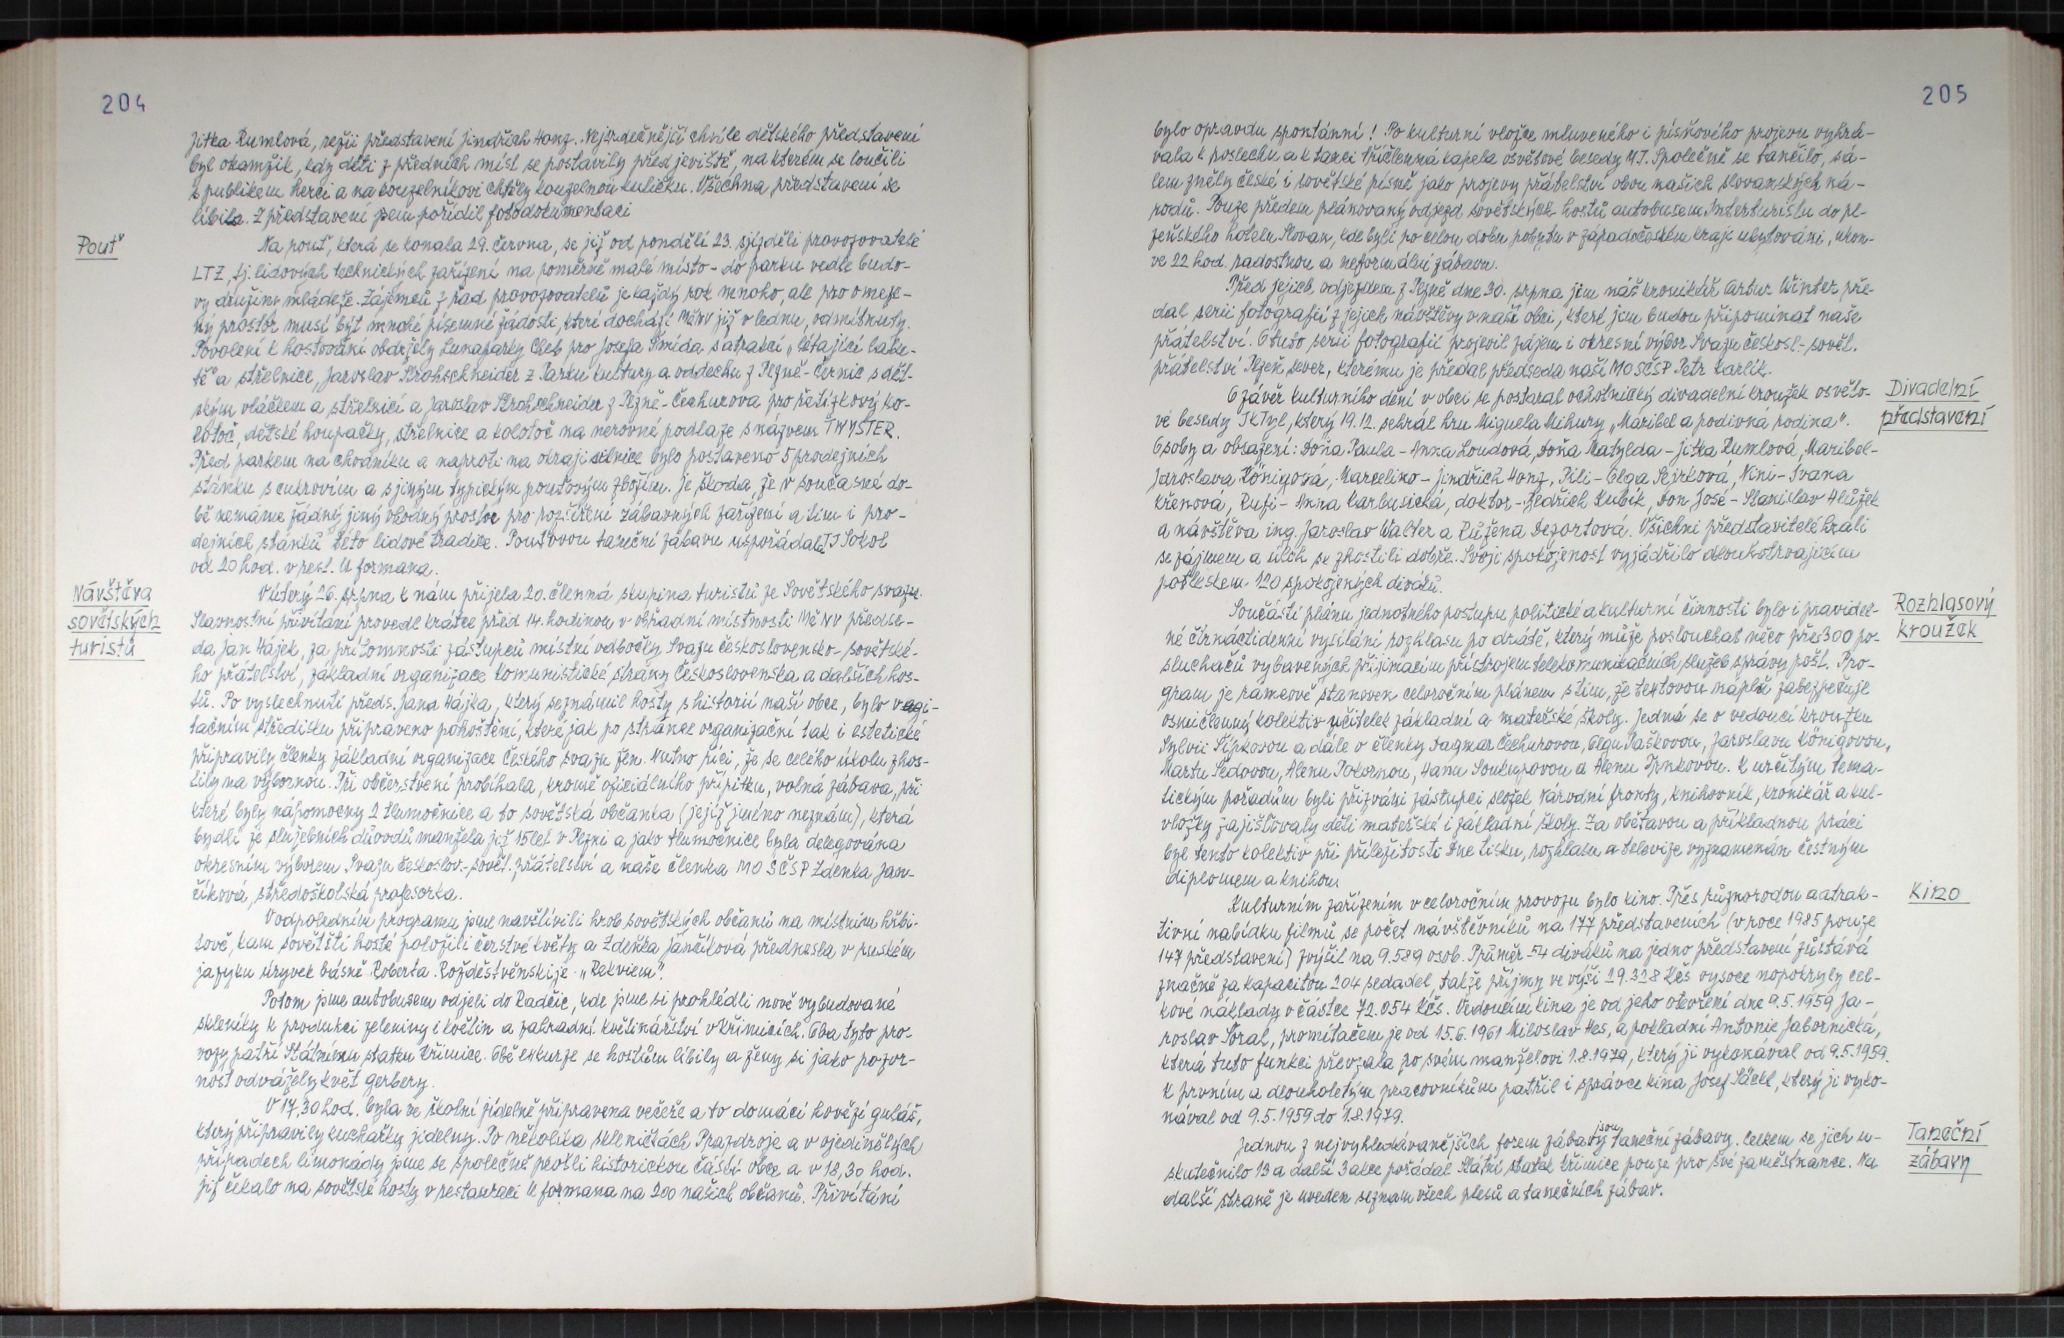 204
Jitka Rumlová, režii představení Jindřich Honz. Nejsrdečnější chvíle dětského představení
byl okamžik, kdy děti z předních míst se postavily před jeviště, na kterém se loučili
s publikem herci a na kouzelníkovi chtěly kouzelnou kuličku. Všechna představení se
líbila. Z představení jsem pořídil fotodokumentaci
Pouť
Na pouť, která se konala 29. června, se již od pondělí 23. sjížděli provozovatelé
LTZ, tj. lidových technických zařízení na poměrně malé místo - do parku vedle budo-
vy družiny mládeže. Zájemců z řad provozovatelů je každý rok mnoho, ale pro omeze-
ný prostor musí být mnohé písemné žádosti, které dochází MěNV již v lednu, odmítnuty.
Povolení k hostování obdržely Lunaparky Cheb pro Josefa Šmída s atrakcí „létající labu-
tě" a střelnice, Jaroslav Strohschneider z Parku kultury a oddechu z Plzně - Černic s dět-
ským vláčkem a střelnicí a Jaroslav Strohschneider z Plzně - Čechurova pro řetízkový ko-
lotoč, dětské houpačky, střelnice a kolotoč na nerovné podlaze s názvem TWYSTER.
Před parkem na chodníku a naproti na okraji silnice bylo postaveno 5 prodejních
stánků s cukrovím a s jiným typickým pouťovým zbožím. Je škoda, že v současné do-
bě nemáme žádný jiný vhodný prostor pro rozšíření zábavných zařízení a tím i pro-
dejních stánků této lidové tradice. Pouťovou taneční zábavu uspořádala TJ Sokol
od 20 hod. v rest. U Formana.
Návštěva
sovětských
turistů
V úterý 26. srpna k nám přijela 20. členná skupina turistů ze Sovětského svazu.
Slavnostní přivítání provedl krátce před 14. hodinou v obřadní místnosti MěNV předse-
da Jan Hájek, za přítomnosti zástupců místní odbočky Svazu československo - sovětské-
ho přátelství, základní organizace Komunistické strany Československa a dalších hos-
tů. Po vyslechnutí předs. Jana Hájka, který seznámil hosty s historií naší obce, bylo v agi-
tačním středisku připraveno pohoštění, které jak po stránce organizační tak i estetické
připravily členky základní organizace Českého svazu žen. Nutno říci, že se celého úkolu zhos-
tily na výbornou. Při občerstvení probíhala, kromě oficiálního přípitku, volná zábava, při
které byly nápomocny 2 tlumočnice a to sovětská občanka (jejíž jméno neznám), která
bydlí ze služebních důvodů manžela již 15 let v Plzni a jako tlumočnice byla delegována
okresním výborem Svazu českoslov.-sovět. přátelství a naše členka MO SČSP Zdenka Jan-
číková, středoškolská profesorka.
V odpoledním programu jsme navštívili hrob sovětských občanů na místním hřbi-
tově, kam sovětští hosté položili čerstvé květy a Zdeňka Jančíková přednesla v ruském
jazyku úryvek básně Roberta Rožděstvěnskije „Rekviem".
Potom jsme autobusem odjeli do Radčic, kde jsme si prohlédli nově vybudované
skleníky k produkci zeleniny i květin a zahradní květinářství v Křimicích. Oba tyto pro-
vozy patří Státnímu statku Křimice. Obě exkurze se hostům líbily a ženy si jako pozor-
nost odvážely květ gerbery.
V 17,30 hod. byla ve školní jídelně připravena večeře a to domácí hovězí guláš,
který připravily kuchařky jídelny. Po několika skleničkách Prazdroje a v ojedinělých
případech limonády jsme se společně prošli historickou částí obce a v 18,30 hod.
již čekalo na sovětské hosty v restauraci U Formana na 200 našich občanů. Přivítání
205
bylo opravdu spontánní! Po kulturní vložce mluveného i písňového projevu vyhrá-
vala k poslechu a k tanci tříčlenná kapela osvětové besedy M.T. Společně se tančilo, sá-
lem zněly české i sovětské písně jako projevy přátelství obou našich slovanských ná-
rodů. Pouze předem plánovaný odjezd sovětských hostů autobusem Interturistu do pl-
zeňského hotelu Slovan, kde byli po celou dobu pobytu v západočeském kraji ubytováni, ukon-
ve 22 hod. radostnou a neformální zábavu.
Před jejich odjezdem z Plzně dne 30. srpna jim náš kronikář Artur Winter pře-
dal serii fotografií z jejich návštěvy v naší obci, které jim budou připomínat naše
přátelství. O tuto serii fotografií projevil zájem i okresní výbor Svazu českosl.-sovět.
přátelství Plzeň sever, kterému je předal předseda naší MO SČSP Petr Karlík.
Divadelní
představení
O závěr kulturního dění v obci se postaral ochotnický divadelní kroužek osvěto-
vé besedy JKTyl, který 19.12. sehrál hru Miguela Mihury „Maribel a podivná rodina".
Osoby a obsazení: Doňa Paula - Anna Loudová, Doňa Matylda - Jitka Rumlová, Maribel-
Jaroslava Königová, Marcelino - Jindřich Honz, Pili - Olga Pejrková, Nini - Ivana
Křenová, Rufi - Anna Karbusická, doktor - Bedřich Kubík, Don José - Stanislav Hlůžek
a návštěva ing. Jaroslav Walter a Růžena Deportová. Všichni představitelé hráli
se zájmem a úloh se zhostili dobře. Svoji spokojenost vyjádřilo dlouhotrvajícím
potleskem 120 spokojených diváků.
Rozhlasový
kroužek
Součástí plánu jednotného postupu politické a kulturní činnosti bylo i pravidel-
né čtrnáctidenní vysílání rozhlasu po drátě, který může poslouchat něco přes 300 po-
sluchačů vybavených přijímacím přístrojem telekomunikačních služeb správy pošt. Pro-
gram je rámcově stanoven celoročním plánem s tím, že textovou náplň zabezpečuje
osmičlenný kolektiv učitelek základní a mateřské školy. Jedná se o vedoucí kroužku
Sylvii Šípkovou a dále o členky Dagmar Čechurovou, Olgu Paškovou, Jaroslavu Königovou,
Martu Šedovou, Alenu Pokornou, Hanu Soukupovou a Alenu Trnkovou. K určitým tema-
tickým pořadům byli přizváni zástupci složek Národní fronty, knihovník, kronikář a kul-
vložky zajišťovaly děti mateřské i základní školy. Za obětavou a příkladnou práci
byl tento kolektiv při příležitosti Dne tisku, rozhlasu a televize vyznamenán čestným
diplomem a knihou.
Kino
Kulturním zařízením v celoročním provozu bylo kino. Přes různorodou a atrak-
tivní nabídku filmů se počet navštěvníků na 177 představeních (v roce 1985 pouze
147 představení) zvýšil na 9.589 osob. Průměr 54 diváků na jedno představení zůstává
značně za kapacitou 204 sedadel, takže příjmy ve výši 29.328 Kčs vysoce nepokryly cel-
kové náklady v částce 72.054 Kčs. Vedoucím kina je od jeho otevření dne 9.5.1959 Ja-
roslav Šoral, promítačem je od 15.6.1961 Miloslav Hes, a pokladní Antonie Jabornická,
která tuto funkci převzala po svém manželovi 1.8.1979, který ji vykonával od 9.5.1959.
K prvním a dlouholetým pracovníkům patřil i správce kina Josef Säckl, který ji vyko-
nával od 9.5.1959 do 1.8.1979.
Taneční
zábavy
Jednou z nejvyhledávanějších forem zábavy jsou taneční zábavy. Celkem se jich u-
skutečnilo 13 a další 3 akce pořádal Státní statek Křimice pouze pro své zaměstnance. Na
další straně je uveden seznam všech plesů a tanečních zábav.